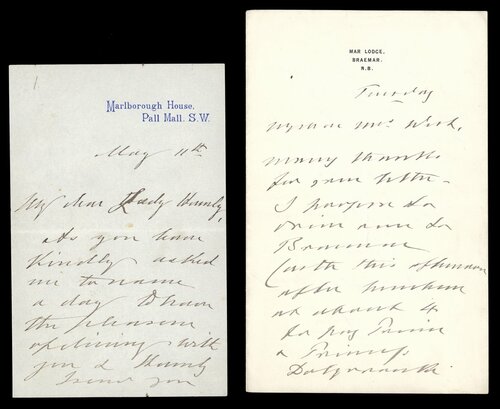 Marlborough House,
Pall Mall. S.W.
May 11th
My dear Lady Huntly,
As you have
kindly asked
me to name
a day to have
the pleasure
of dining with
you & Huntly
you
MAR LODGE,
BRAEMAR.
N.B.
Tuesday
My dear Mrs
many thanks
for your letter -
I propose to
drive over to
Braemar
Castle this afternoon
after luncheon
at about 4
to pay Prince
& Princess
Dolgorouki